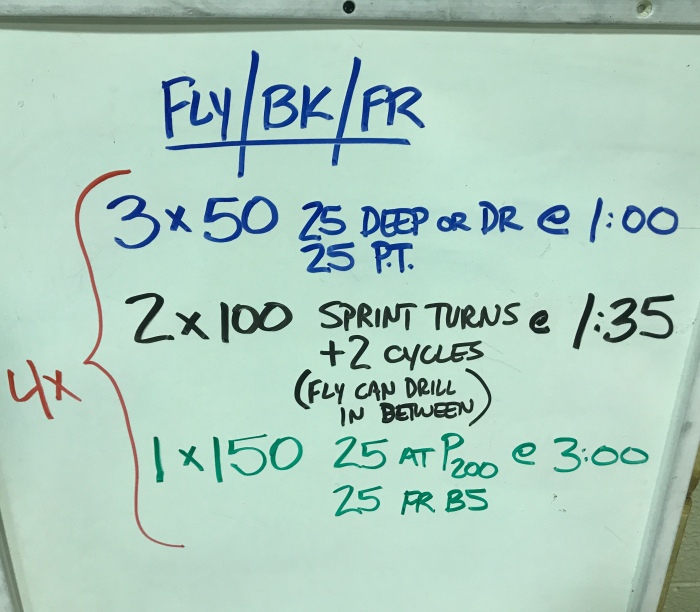 FLY/BK/FR
4x
3 x 50 25 DEEP OR DR @ 1:00
25 P.T.
2 x 100 SPRINT TURNS @ 1:35
+2 CYCLES
(FLY CAN DRILL
IN BETWEEN)
1 x 150 25 AT P200 @ 3:00
25 FR B5